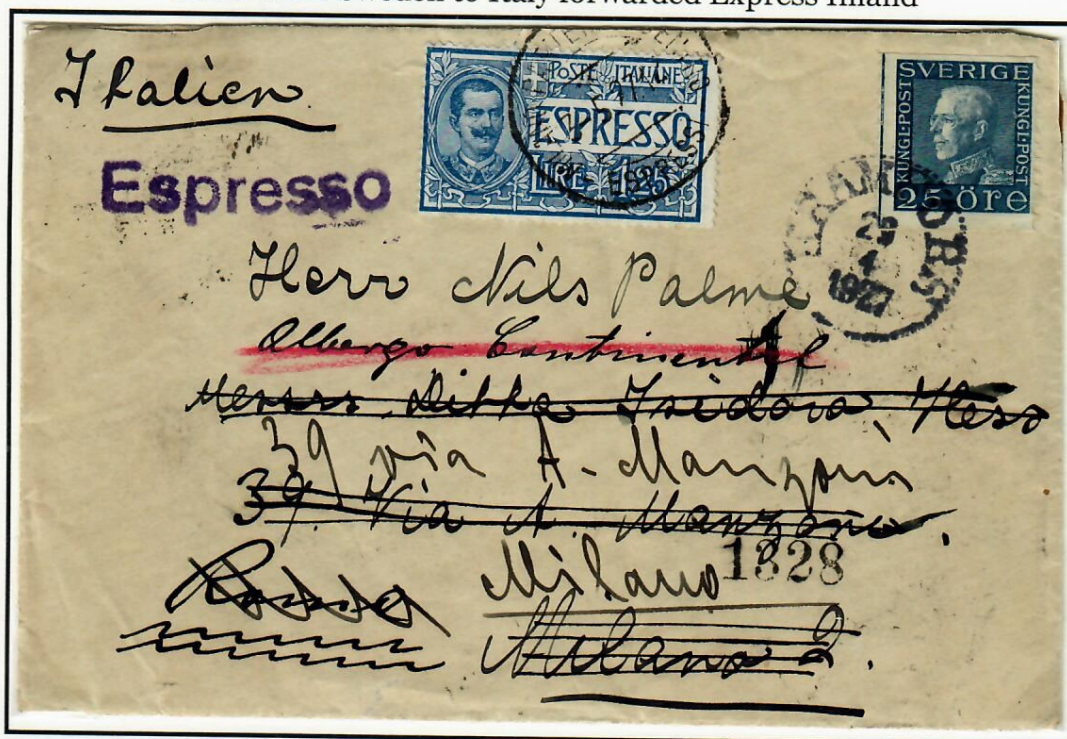 Sweden to Italy forwarded Express Inland
Italien
Espresso
POSTE ITALIANE
ESPRESSO
LIRE 1,25
ESPRESSI
SVERIGE
KUNGL·POST
KUNGL·POST
25 öre
25
4
1927
Herr Nils Palme
Albergo Continental
Messrs. Ditta Isidora
39 via A. Manzoni
39. Via A. Manzoni.
Roma Milano 1328
Milano 2.